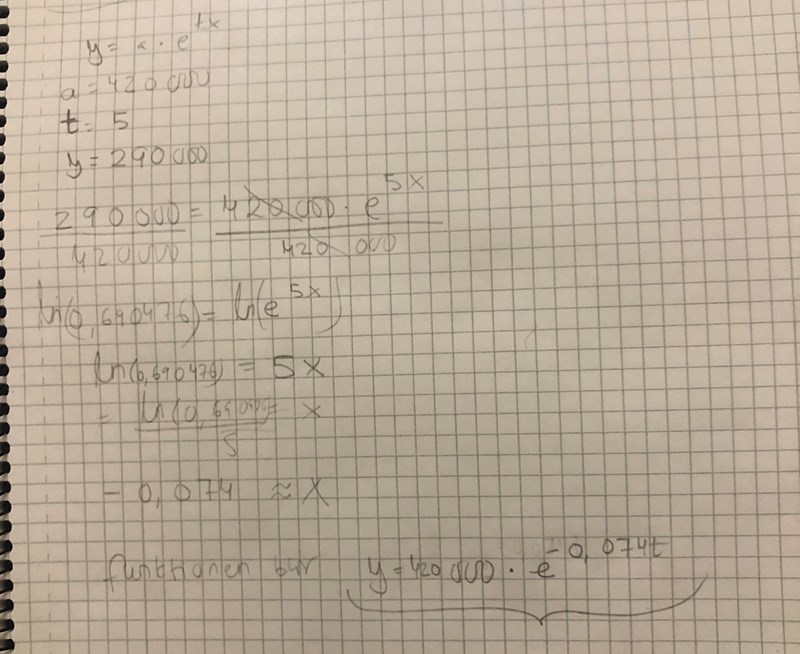 y = a · e^tx
a = 420 000
t = 5
y = 290 000
290 000 / 420 000 = 420 000 · e^5x / 420 000
ln(0,690476) = ln(e^5x)
ln(0,690476) = 5x
= ln(0,690476) / 5 = x
- 0,074 ≈ x
funktionen blir y = 420 000 · e^-0,074t